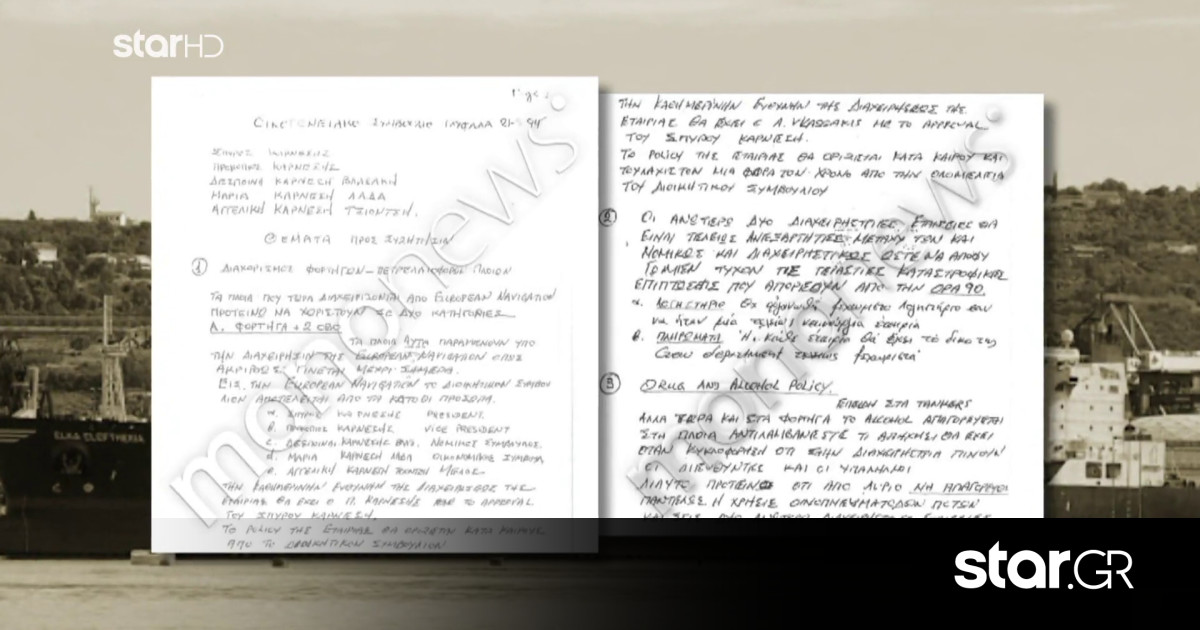 star HD
ΟΙΚΟΓΕΝΕΙΑΚΟ ΣΥΜΒΟΥΛΙΟ
ΣΠΥΡΟΣ ΚΑΡΝΕΣΗΣ
ΠΡΟΚΟΠΗΣ ΚΑΡΝΕΣΗΣ
ΔΕΣΠΟΙΝΑ ΚΑΡΝΕΣΗ
ΜΑΡΙΑ ΚΑΡΝΕΣΗ ΛΑΔΑ
ΑΓΓΕΛΙΚΗ ΚΑΡΝΕΣΗ ΤΣΙΟΝΤΣΗ.
ΘΕΜΑΤΑ ΠΡΟΣ ΣΥΖΗΤΗΣΙΝ
① ΔΙΑΧΩΡΙΣΜΟΣ ΦΟΡΤΗΓΩΝ – ΠΕΤΡΕΛΑΙΟΦΟΡΩΝ ΠΛΟΙΩΝ
ΤΑ ΠΛΟΙΑ ΠΟΥ ΤΩΡΑ ΔΙΑΧΕΙΡΙΖΟΝΤΑΙ ΑΠΟ EUROPEAN NAVIGATION
ΠΡΟΤΕΙΝΩ ΝΑ ΧΩΡΙΣΤΟΥΝ ΣΕ ΔΥΟ ΚΑΤΗΓΟΡΙΕΣ
Α. ΦΟΡΤΗΓΑ + 2 OBO
ΤΑ ΠΛΟΙΑ ΑΥΤΑ ΠΑΡΑΜΕΝΟΥΝ ΥΠΟ
ΤΗΝ ΔΙΑΧΕΙΡΗΣΙΝ ΤΗΣ EUROPEAN NAVIGATION ΟΠΩΣ
ΑΚΡΙΒΩΣ ΓΙΝΕΤΑΙ ΜΕΧΡΙ ΣΗΜΕΡΑ.
ΕΙΣ ΤΗΝ EUROPEAN NAVIGATION ΤΟ ΔΙΟΙΚΗΤΙΚΟΝ ΣΥΜΒΟΥ
ΛΙΟΝ ΑΠΟΤΕΛΕΙΤΑΙ ΑΠΟ ΤΑ ΚΑΤΩΘΙ ΠΡΟΣΩΠΑ.
α. ΣΠΥΡΟΣ ΚΑΡΝΕΣΗΣ PRESIDENT
β. ΠΡΟΚΟΠΗΣ ΚΑΡΝΕΣΗΣ VICE PRESIDENT
c. ΔΕΣΠΟΙΝΑ ΚΑΡΝΕΣΗ ΝΟΜΙΚΟΣ ΣΥΜΒΟΥΛΟΣ
d. ΜΑΡΙΑ ΚΑΡΝΕΣΗ ΛΑΔΑ ΟΙΚΟΝΟΜΙΚΟΣ ΣΥΜΒΟΥΛ
e. ΑΓΓΕΛΙΚΗ ΚΑΡΝΕΣΗ ΤΣΙΟΝΤΣΗ ΜΕΛΟΣ
ΤΗΝ ΚΑΘΗΜΕΡΙΝΗΝ ΕΥΘΥΝΗΝ ΤΗΣ ΔΙΑΧΕΙΡΗΣΕΩΣ ΤΗΣ
ΕΤΑΙΡΙΑΣ ΘΑ ΕΧΕΙ Ο Π. ΚΑΡΝΕΣΗΣ ΜΕ ΤΟ APPROVAL
ΤΟΥ ΣΠΥΡΟΥ ΚΑΡΝΕΣΗ.
ΤΟ POLICY ΤΗΣ ΕΤΑΙΡΙΑΣ ΘΑ ΟΡΙΖΕΤΑΙ ΚΑΤΑ ΚΑΙΡΟΥΣ
ΑΠΟ ΤΟ ΔΙΟΙΚΗΤΙΚΟΝ ΣΥΜΒΟΥΛΙΟΝ
ΤΗΝ ΚΑΘΗΜΕΡΙΝΗΝ ΕΥΘΥΝΗΝ ΤΗΣ ΔΙΑΧΕΙΡΗΣΕΩΣ ΤΗΣ
ΕΤΑΙΡΙΑΣ ΘΑ ΕΧΕΙ Ο Α. ΜΕ ΤΟ APPROVAL
ΤΟΥ ΣΠΥΡΟΥ ΚΑΡΝΕΣΗ.
ΤΟ POLICY ΤΗΣ ΕΤΑΙΡΙΑΣ ΘΑ ΟΡΙΖΕΤΑΙ ΚΑΤΑ ΚΑΙΡΟΥ ΚΑΙ
ΤΟΥΛΑΧΙΣΤΟΝ ΜΙΑ ΦΟΡΑ ΤΟΝ ΧΡΟΝΟ ΑΠΟ ΤΗΝ ΟΛΟΜΕΛΕΙΑ
ΤΟΥ ΔΙΟΙΚΗΤΙΚΟΥ ΣΥΜΒΟΥΛΙΟΥ
② ΟΙ ΑΝΩΤΕΡΩ ΔΥΟ ΔΙΑΧΕΙΡΗΣΤΡΙΕΣ ΕΤΑΙΡΕΙΕΣ ΘΑ
ΕΙΝΑΙ ΤΕΛΕΙΩΣ ΑΝΕΞΑΡΤΗΤΕΣ ΜΕΤΑΞΥ ΤΩΝ ΚΑΙ
ΝΟΜΙΚΩΣ ΚΑΙ ΔΙΑΧΕΙΡΗΣΤΙΚΩΣ ΩΣΤΕ ΝΑ ΑΠΟΦΥ
ΓΩΜΕΝ ΤΥΧΟΝ ΤΙΣ ΤΕΡΑΣΤΙΕΣ ΚΑΤΑΣΤΡΟΦΙΚΕΣ
ΕΠΙΠΤΩΣΕΙΣ ΠΟΥ ΑΠΟΡΕΟΥΝ ΑΠΟ ΤΗΝ OPA 90.
α. ΛΟΓΙΣΤΗΡΙΟ Θα φτιαχθη ξεχωριστο λογιστήριο σαν
να ήταν μία τελείως καινούργια εταιρία
β. ΠΛΗΡΩΜΑΤΑ Η κάθε εταιρία θα έχει το δικό της
Crew department τελείως ξεχωριστά
③ DRUG AND ALCOHOL POLICY.
ΕΠΕΙΔΗ ΣΤΑ TANKERS
ΑΛΛΑ ΤΩΡΑ ΚΑΙ ΣΤΑ ΦΟΡΤΗΓΑ ΤΟ ALCOHOL ΑΠΑΓΟΡΕΥΕΤΑΙ
ΣΤΑ ΠΛΟΙΑ ΑΝΤΙΛΑΜΒΑΝΕΣΤΕ ΤΙ ΑΠΗΧΗΣΗ ΘΑ ΕΧΕΙ
ΟΤΑΝ ΚΥΚΛΟΦΟΡΗΣΗ ΟΤΙ ΣΤΗΝ ΔΙΑΧΕΙΡΙΣΤΡΙΑ ΠΙΝΟΥΝ
ΟΙ ΔΙΕΥΘΥΝΤΕΣ ΚΑΙ ΟΙ ΥΠΑΛΛΗΛΟΙ
ΔΙ ΑΥΤΟ ΠΡΟΤΕΙΝΩ ΟΤΙ ΑΠΟ ΑΥΡΙΟ ΝΑ ΑΠΑΓΟΡΕΥΘΕΙ
ΠΑΝΤΕΛΩΣ Η ΧΡΗΣΙΣ ΟΙΝΟΠΝΕΥΜΑΤΩΔΩΝ ΠΟΤΩΝ
mononews
mononews
ELKA ELEFTHERIA
star.GR